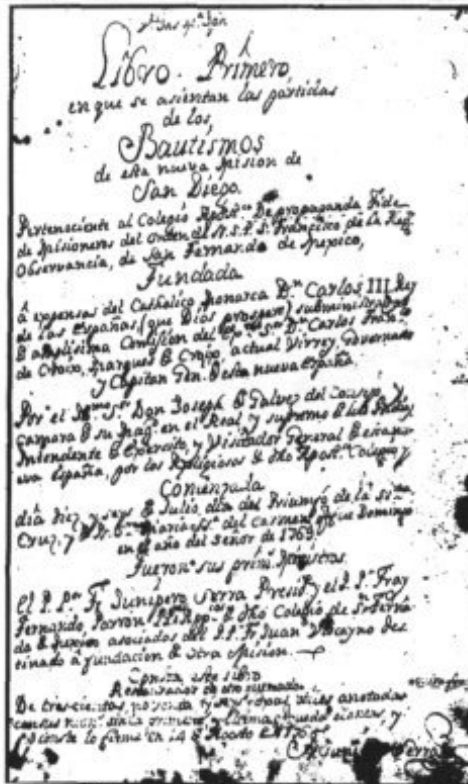 Libro Primero,
en que se asientan las partidas
de los
Bautismos
de esta nueva Mision de
San Diego.
Perteneciente al Colegio Apost.co De propaganda Fide
de Misioneros del orden de N.S.P.S. Francisco de la Reg.r
Observancia, de San Fernando de Mexico,
Fundada
â expensas del Catholico Monarca D.n Carlos III Rey
de las Españas, (que Dios prospere) subministradas
amplissima Comission del D.n Carlos Fran.co
de Croix, Marques de Croix, actual Virrey Governador
y Capitan Gen. de esta nueva España
Por el Don Joseph de Galvez del Consejo y
Camara de su Mag. en el Real y supremo de las Indias
Intendente de Exercito y Visitador General de esta nu-
eva España, por los Religiosos de dho Apost. Colegio
Comenzada
dia diez y seys de Julio, dia del Triunfo de la
Cruz, y del Carmen Domingo
en el año del Señor de 1769
Fueron sus prim.s Ministros
El P. Fr. Junipero Serra Presid.te y el P. Fray
Fernando Parron de dho Colegio de S. Ferna-
do de Mexico asociados del P. Fr. Juan Viscayno des-
tinado â fundacion de otra Mision.
Consta este libro
De trescientas, y anotadas
con sus la primera y ultima y
lo firme en 14 de Agosto de
Fr. Junipero Serra